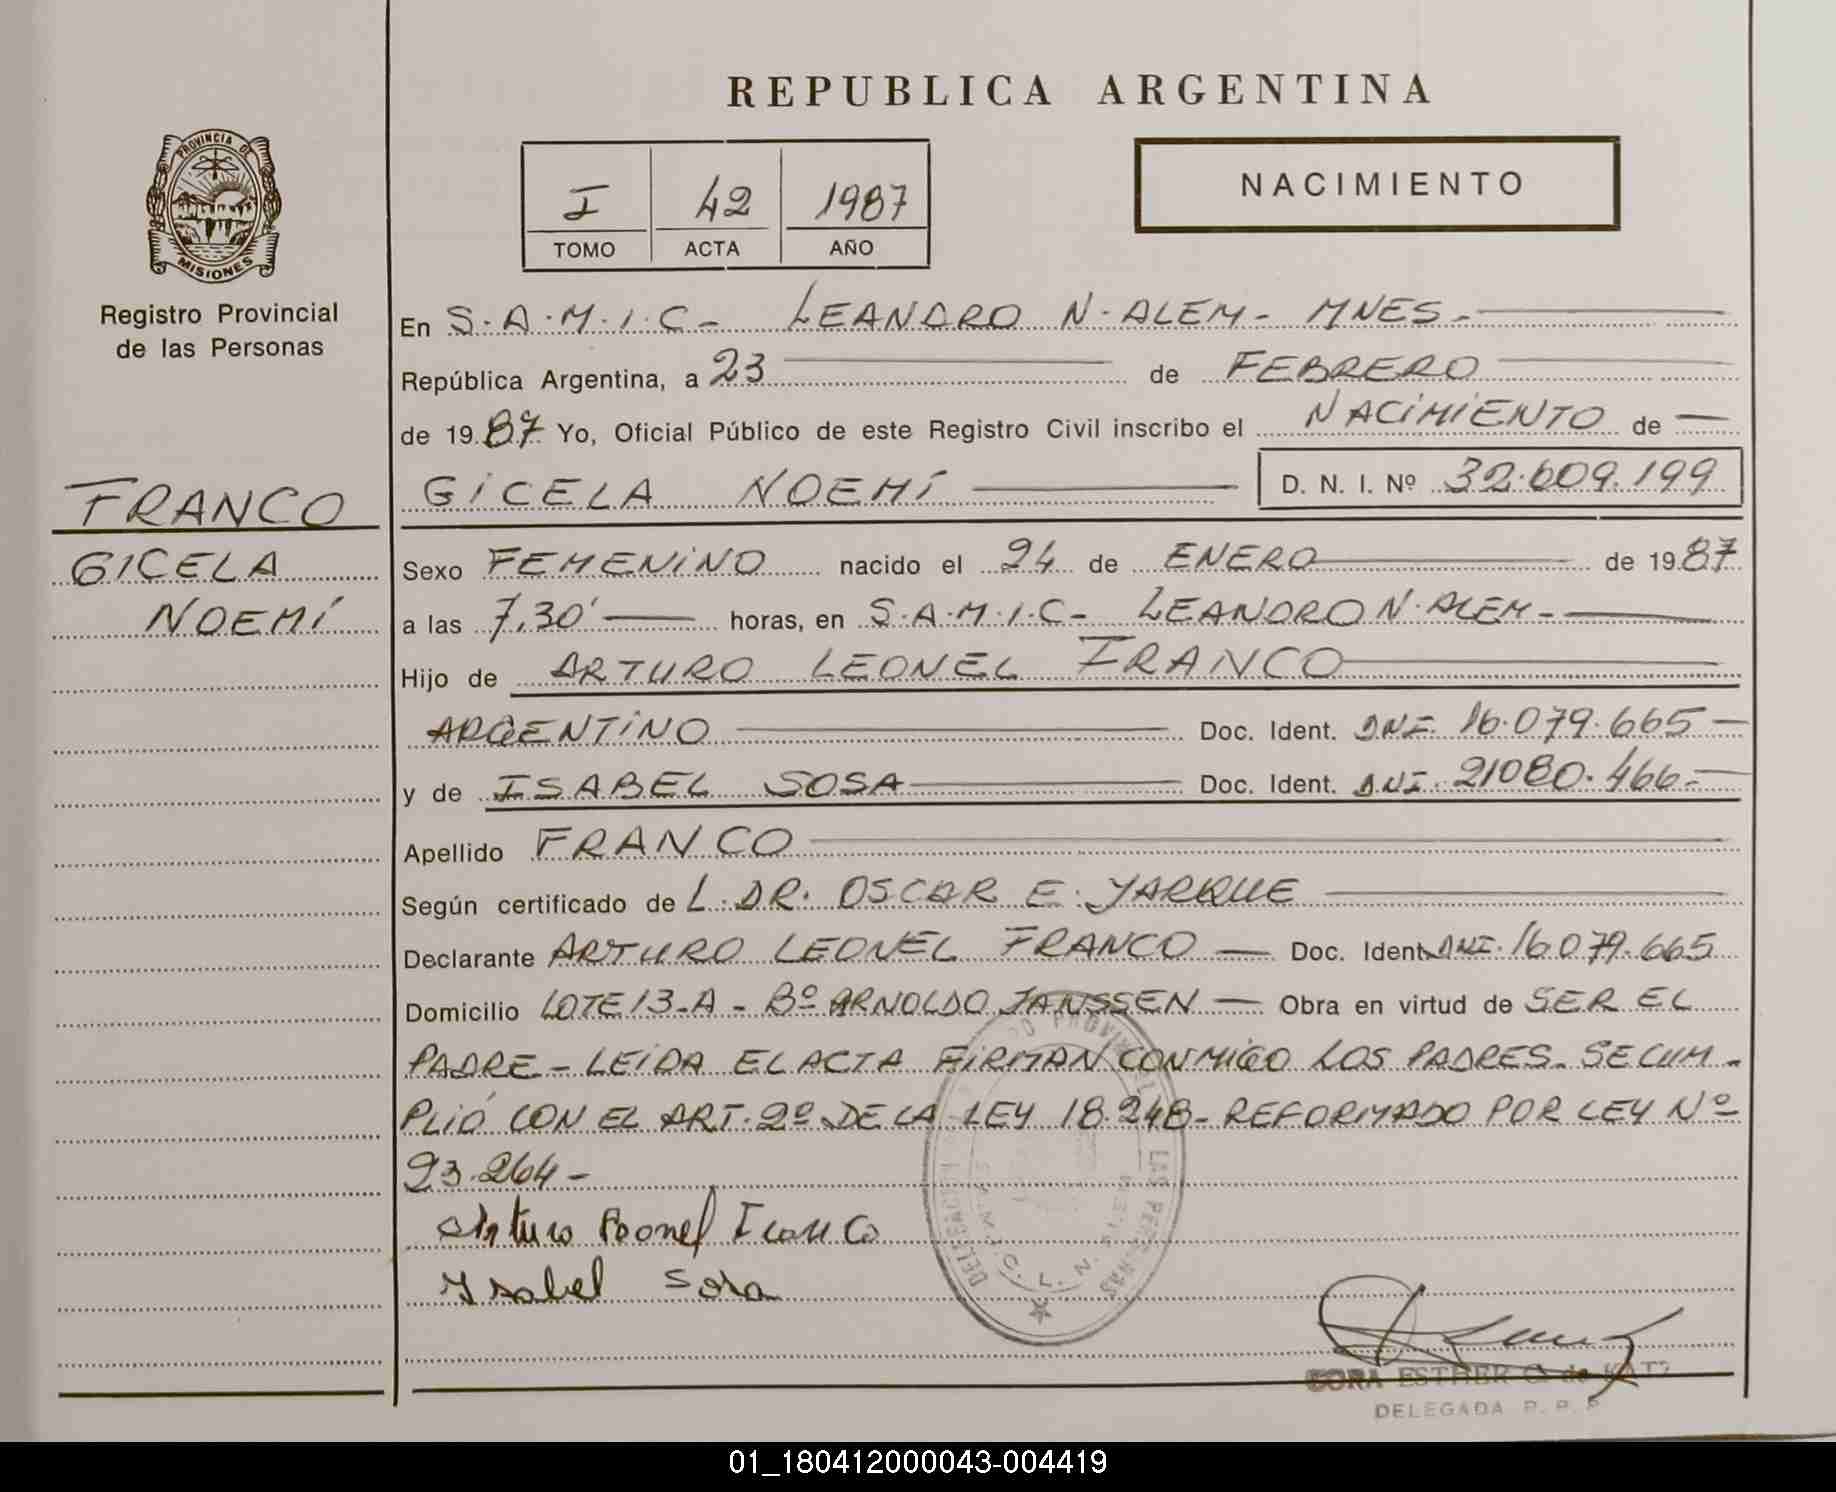 REPUBLICA ARGENTINA
PROVINCIA DE
MISIONES
Registro Provincial
de las Personas
I 42 1987
TOMO ACTA AÑO
NACIMIENTO
En S.A.M.I.C- LEANDRO N. ALEM- MNES-
República Argentina, a 23 de FEBRERO
de 1987 Yo, Oficial Público de este Registro Civil inscribo el NACIMIENTO de
FRANCO
GICELA NOEMÍ D. N. I. Nº 32.609.199
GICELA
NOEMÍ
Sexo FEMENINO nacido el 24 de ENERO de 1987
a las 7,30' horas, en S.A.M.I.C- LEANDRO N. ALEM-
Hijo de ARTURO LEONEL FRANCO
ARGENTINO Doc. Ident. DNI. 16.079.665
y de ISABEL SOSA Doc. Ident. DNI. 21080.466-
Apellido FRANCO
Según certificado de L. DR. OSCAR E. YARQUE
Declarante ARTURO LEONEL FRANCO Doc. Ident. DNI. 16079.665
Domicilio LOTE 13-A - Bº ARNOLDO JANSSEN Obra en virtud de SER EL
PADRE - LEIDA EL ACTA FIRMAN CONMIGO LOS PADRES- SE CUM-
PLIÓ CON EL ART. 2º DE LA LEY 18.248- REFORMADO POR LEY Nº
23.264-
Arturo Leonel Franco
Isabel Sosa
ESTHER G. de KATZ
DELEGADA R. P. P.
01_180412000043-004419